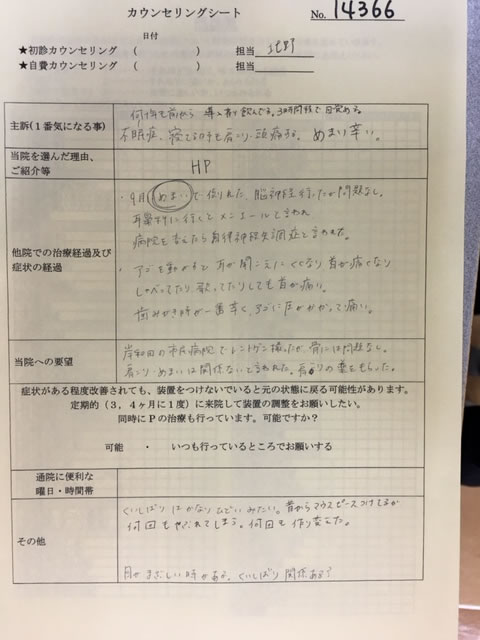 カウンセリングシート
No. 14366
日付
★初診カウンセリング ( ) 担当
★自費カウンセリング ( ) 担当
主訴(1番気になる事)
何年も前から 導入剤飲んでる。3時間程で目覚める。
不眠症、寝てる時も肩こり・頭痛する。 めまい辛い。
当院を選んだ理由、
ご紹介等
HP
他院での治療経過及び
症状の経過
・9月 めまいで倒れた、脳神経行ったが問題なし。
耳鼻科に行くとメニエールと言われ
病院を変えたら自律神経失調症と言われた。
・アゴを動かすと 耳が聞こえにくくなり 首が痛くなり
しゃべってたり、歌ってたりしても首が痛い。
歯みがき時が一番辛く、アゴに圧がかかって痛い。
当院への要望
岸和田の市民病院でレントゲン撮ったが、骨には問題なし。
肩こり・めまいは関係ないと言われた。肩こりの薬をもらった。
症状がある程度改善されても、装置をつけないでいると元の状態に戻る可能性があります。
定期的(3,4ヶ月に1度)に来院して装置の調整をお願いしたい。
同時にPの治療も行っています。可能ですか?
可能 ・ いつも行っているところでお願いする
通院に便利な
曜日・時間帯
その他
くいしばりはかなりひどいみたい。昔からマウスピースつけてるが
何回もやぶれてしまう。何回も作り変えた。
目がまぶしい時がある。くいしばり関係ある?